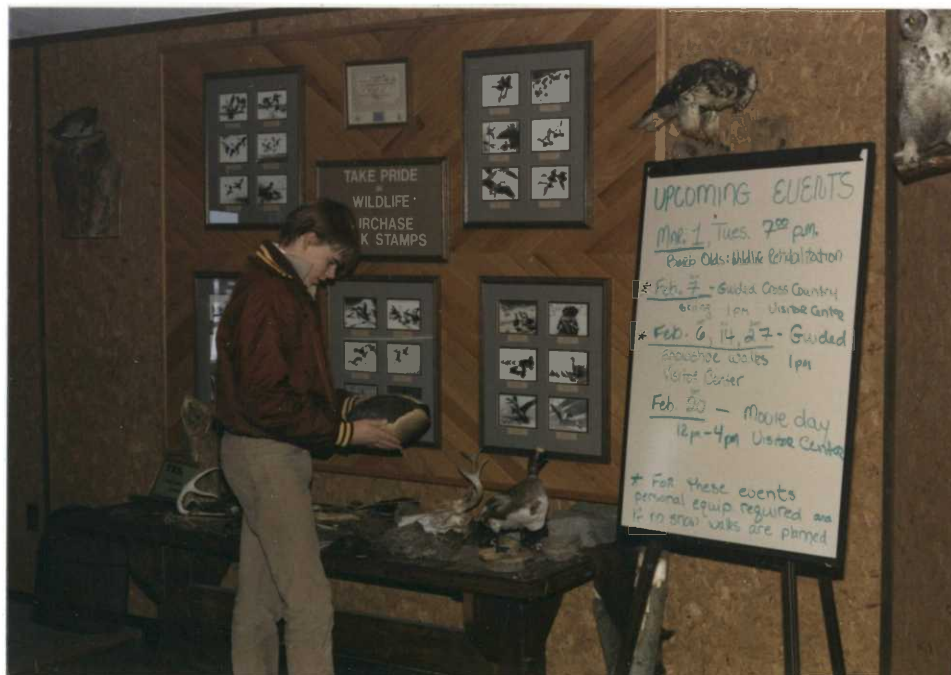 TAKE PRIDE
IN
WILDLIFE
URCHASE
K STAMPS
UPCOMING EVENTS
MAR. 1, Tues. 7:00 p.m.
Barb Olds: Wildlife Rehabilitation
* Feb. 7 - Guided Cross Country
skiing 1pm Visitor Centre
* Feb. 6, 14, 27 - Guided
snowshoe walks 1pm
Visitor Center
Feb. 20 - Movie day
12pm - 4pm Visitor Centre
* For these events
personal equip required and
if no snow walks are planned